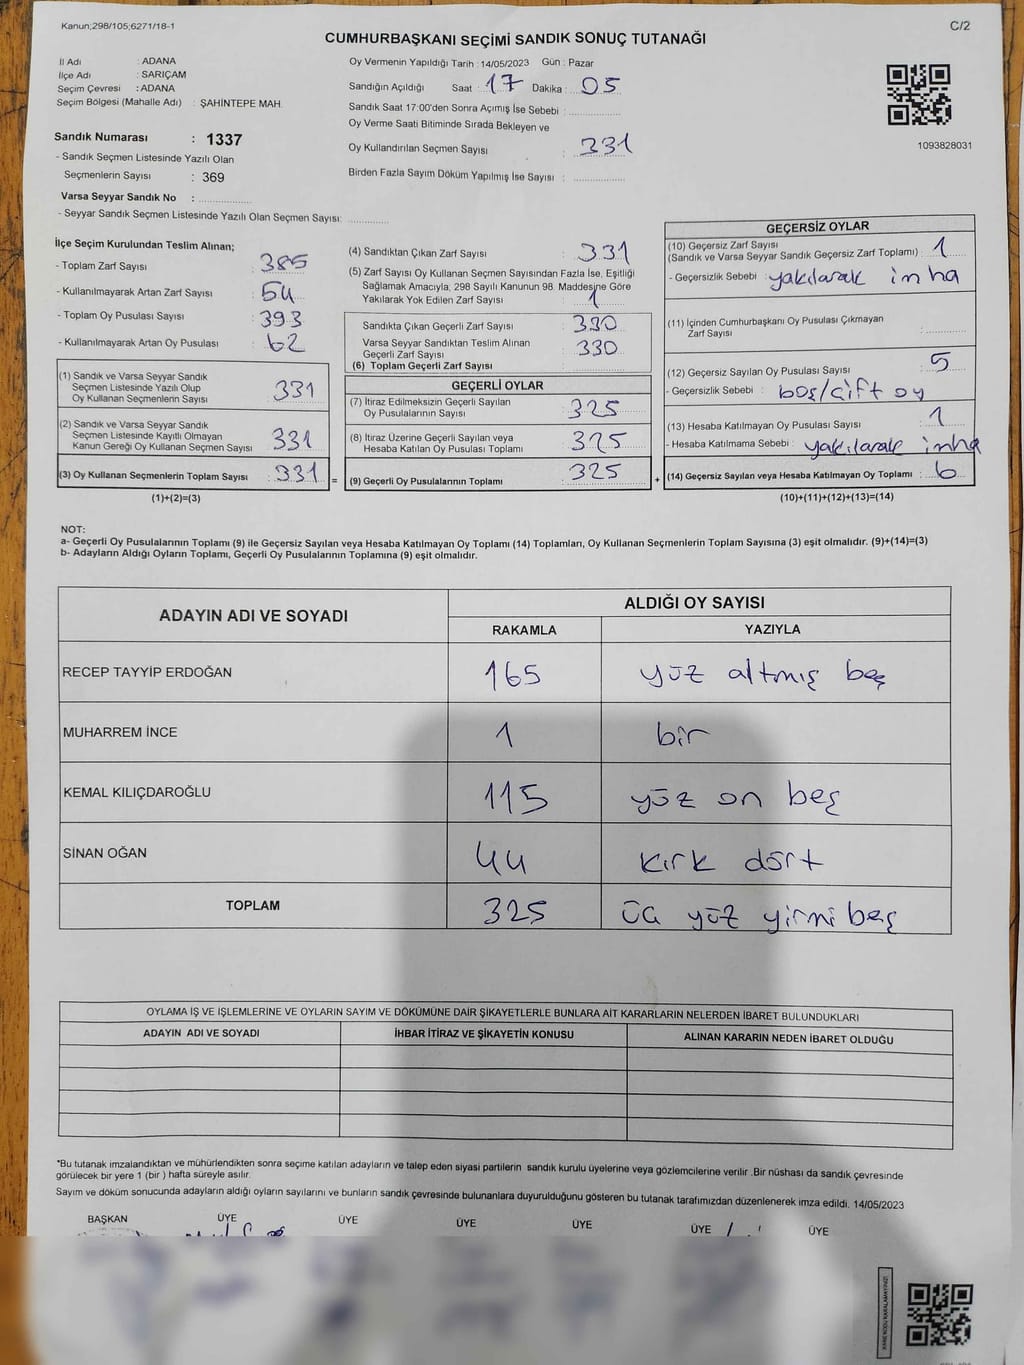 Kanun;298/105;6271/18-1
C/2
CUMHURBAŞKANI SEÇİMİ SANDIK SONUÇ TUTANAĞI
İl Adı : ADANA
İlçe Adı : SARIÇAM
Seçim Çevresi : ADANA
Seçim Bölgesi (Mahalle Adı) : ŞAHİNTEPE MAH.
Sandık Numarası : 1337
- Sandık Seçmen Listesinde Yazılı Olan
Seçmenlerin Sayısı : 369
Varsa Seyyar Sandık No :
- Seyyar Sandık Seçmen Listesinde Yazılı Olan Seçmen Sayısı:
Oy Vermenin Yapıldığı Tarih : 14/05/2023 Gün : Pazar
Sandığın Açıldığı Saat : 17 Dakika : 05
Sandık Saat 17:00'den Sonra Açımış İse Sebebi :
Oy Verme Saati Bitiminde Sırada Bekleyen ve
Oy Kullandırılan Seçmen Sayısı : 331
Birden Fazla Sayım Döküm Yapılmış İse Sayısı :
1093828031
İlçe Seçim Kurulundan Teslim Alınan;
- Toplam Zarf Sayısı : 385
- Kullanılmayarak Artan Zarf Sayısı : 54
- Toplam Oy Pusulası Sayısı : 393
- Kullanılmayarak Artan Oy Pusulası : 62
(1) Sandık ve Varsa Seyyar Sandık
Seçmen Listesinde Yazılı Olup
Oy Kullanan Seçmenlerin Sayısı : 331
(2) Sandık ve Varsa Seyyar Sandık
Seçmen Listesinde Kayıtlı Olmayan
Kanun Gereği Oy Kullanan Seçmen Sayısı : 331
(3) Oy Kullanan Seçmenlerin Toplam Sayısı : 331
(1)+(2)=(3)
=
(4) Sandıktan Çıkan Zarf Sayısı : 331
(5) Zarf Sayısı Oy Kullanan Seçmen Sayısından Fazla İse, Eşitliği
Sağlamak Amacıyla, 298 Sayılı Kanunun 98. Maddesine Göre
Yakılarak Yok Edilen Zarf Sayısı : 1
Sandıkta Çıkan Geçerli Zarf Sayısı : 330
Varsa Seyyar Sandıktan Teslim Alınan
Geçerli Zarf Sayısı : 330
(6) Toplam Geçerli Zarf Sayısı :
GEÇERLİ OYLAR
(7) İtiraz Edilmeksizin Geçerli Sayılan
Oy Pusulalarının Sayısı : 325
(8) İtiraz Üzerine Geçerli Sayılan veya
Hesaba Katılan Oy Pusulası Toplamı : 325
(9) Geçerli Oy Pusulalarının Toplamı : 325
+
GEÇERSİZ OYLAR
(10) Geçersiz Zarf Sayısı
(Sandık ve Varsa Seyyar Sandık Geçersiz Zarf Toplamı) : 1
- Geçersizlik Sebebi : yakılarak imha
(11) İçinden Cumhurbaşkanı Oy Pusulası Çıkmayan
Zarf Sayısı :
(12) Geçersiz Sayılan Oy Pusulası Sayısı : 5
- Geçersizlik Sebebi : boş/çift oy
(13) Hesaba Katılmayan Oy Pusulası Sayısı : 1
- Hesaba Katılmama Sebebi : yakılarak imha
(14) Geçersiz Sayılan veya Hesaba Katılmayan Oy Toplamı : 6
(10)+(11)+(12)+(13)=(14)
NOT:
a- Geçerli Oy Pusulalarının Toplamı (9) ile Geçersiz Sayılan veya Hesaba Katılmayan Oy Toplamı (14) Toplamları, Oy Kullanan Seçmenlerin Toplam Sayısına (3) eşit olmalıdır. (9)+(14)=(3)
b- Adayların Aldığı Oyların Toplamı, Geçerli Oy Pusulalarının Toplamına (9) eşit olmalıdır.
ADAYIN ADI VE SOYADI
ALDIĞI OY SAYISI
RAKAMLA YAZIYLA
RECEP TAYYİP ERDOĞAN 165 yüz altmış beş
MUHARREM İNCE 1 bir
KEMAL KILIÇDAROĞLU 115 yüz on beş
SİNAN OĞAN 44 kırk dört
TOPLAM 325 üç yüz yirmi beş
OYLAMA İŞ VE İŞLEMLERİNE VE OYLARIN SAYIM VE DÖKÜMÜNE DAİR ŞİKAYETLERLE BUNLARA AİT KARARLARIN NELERDEN İBARET BULUNDUKLARI
ADAYIN ADI VE SOYADI İHBAR İTİRAZ VE ŞİKAYETİN KONUSU ALINAN KARARIN NEDEN İBARET OLDUĞU
*Bu tutanak imzalandıktan ve mühürlendikten sonra seçime katılan adayların ve talep eden siyasi partilerin sandık kurulu üyelerine veya gözlemcilerine verilir .Bir nüshası da sandık çevresinde
görülecek bir yere 1 (bir ) hafta süreyle asılır.
Sayım ve döküm sonucunda adayların aldığı oyların sayılarını ve bunların sandık çevresinde bulunanlara duyurulduğunu gösteren bu tutanak tarafımızdan düzenlenerek imza edildi. 14/05/2023
BAŞKAN ÜYE ÜYE ÜYE ÜYE ÜYE ÜYE